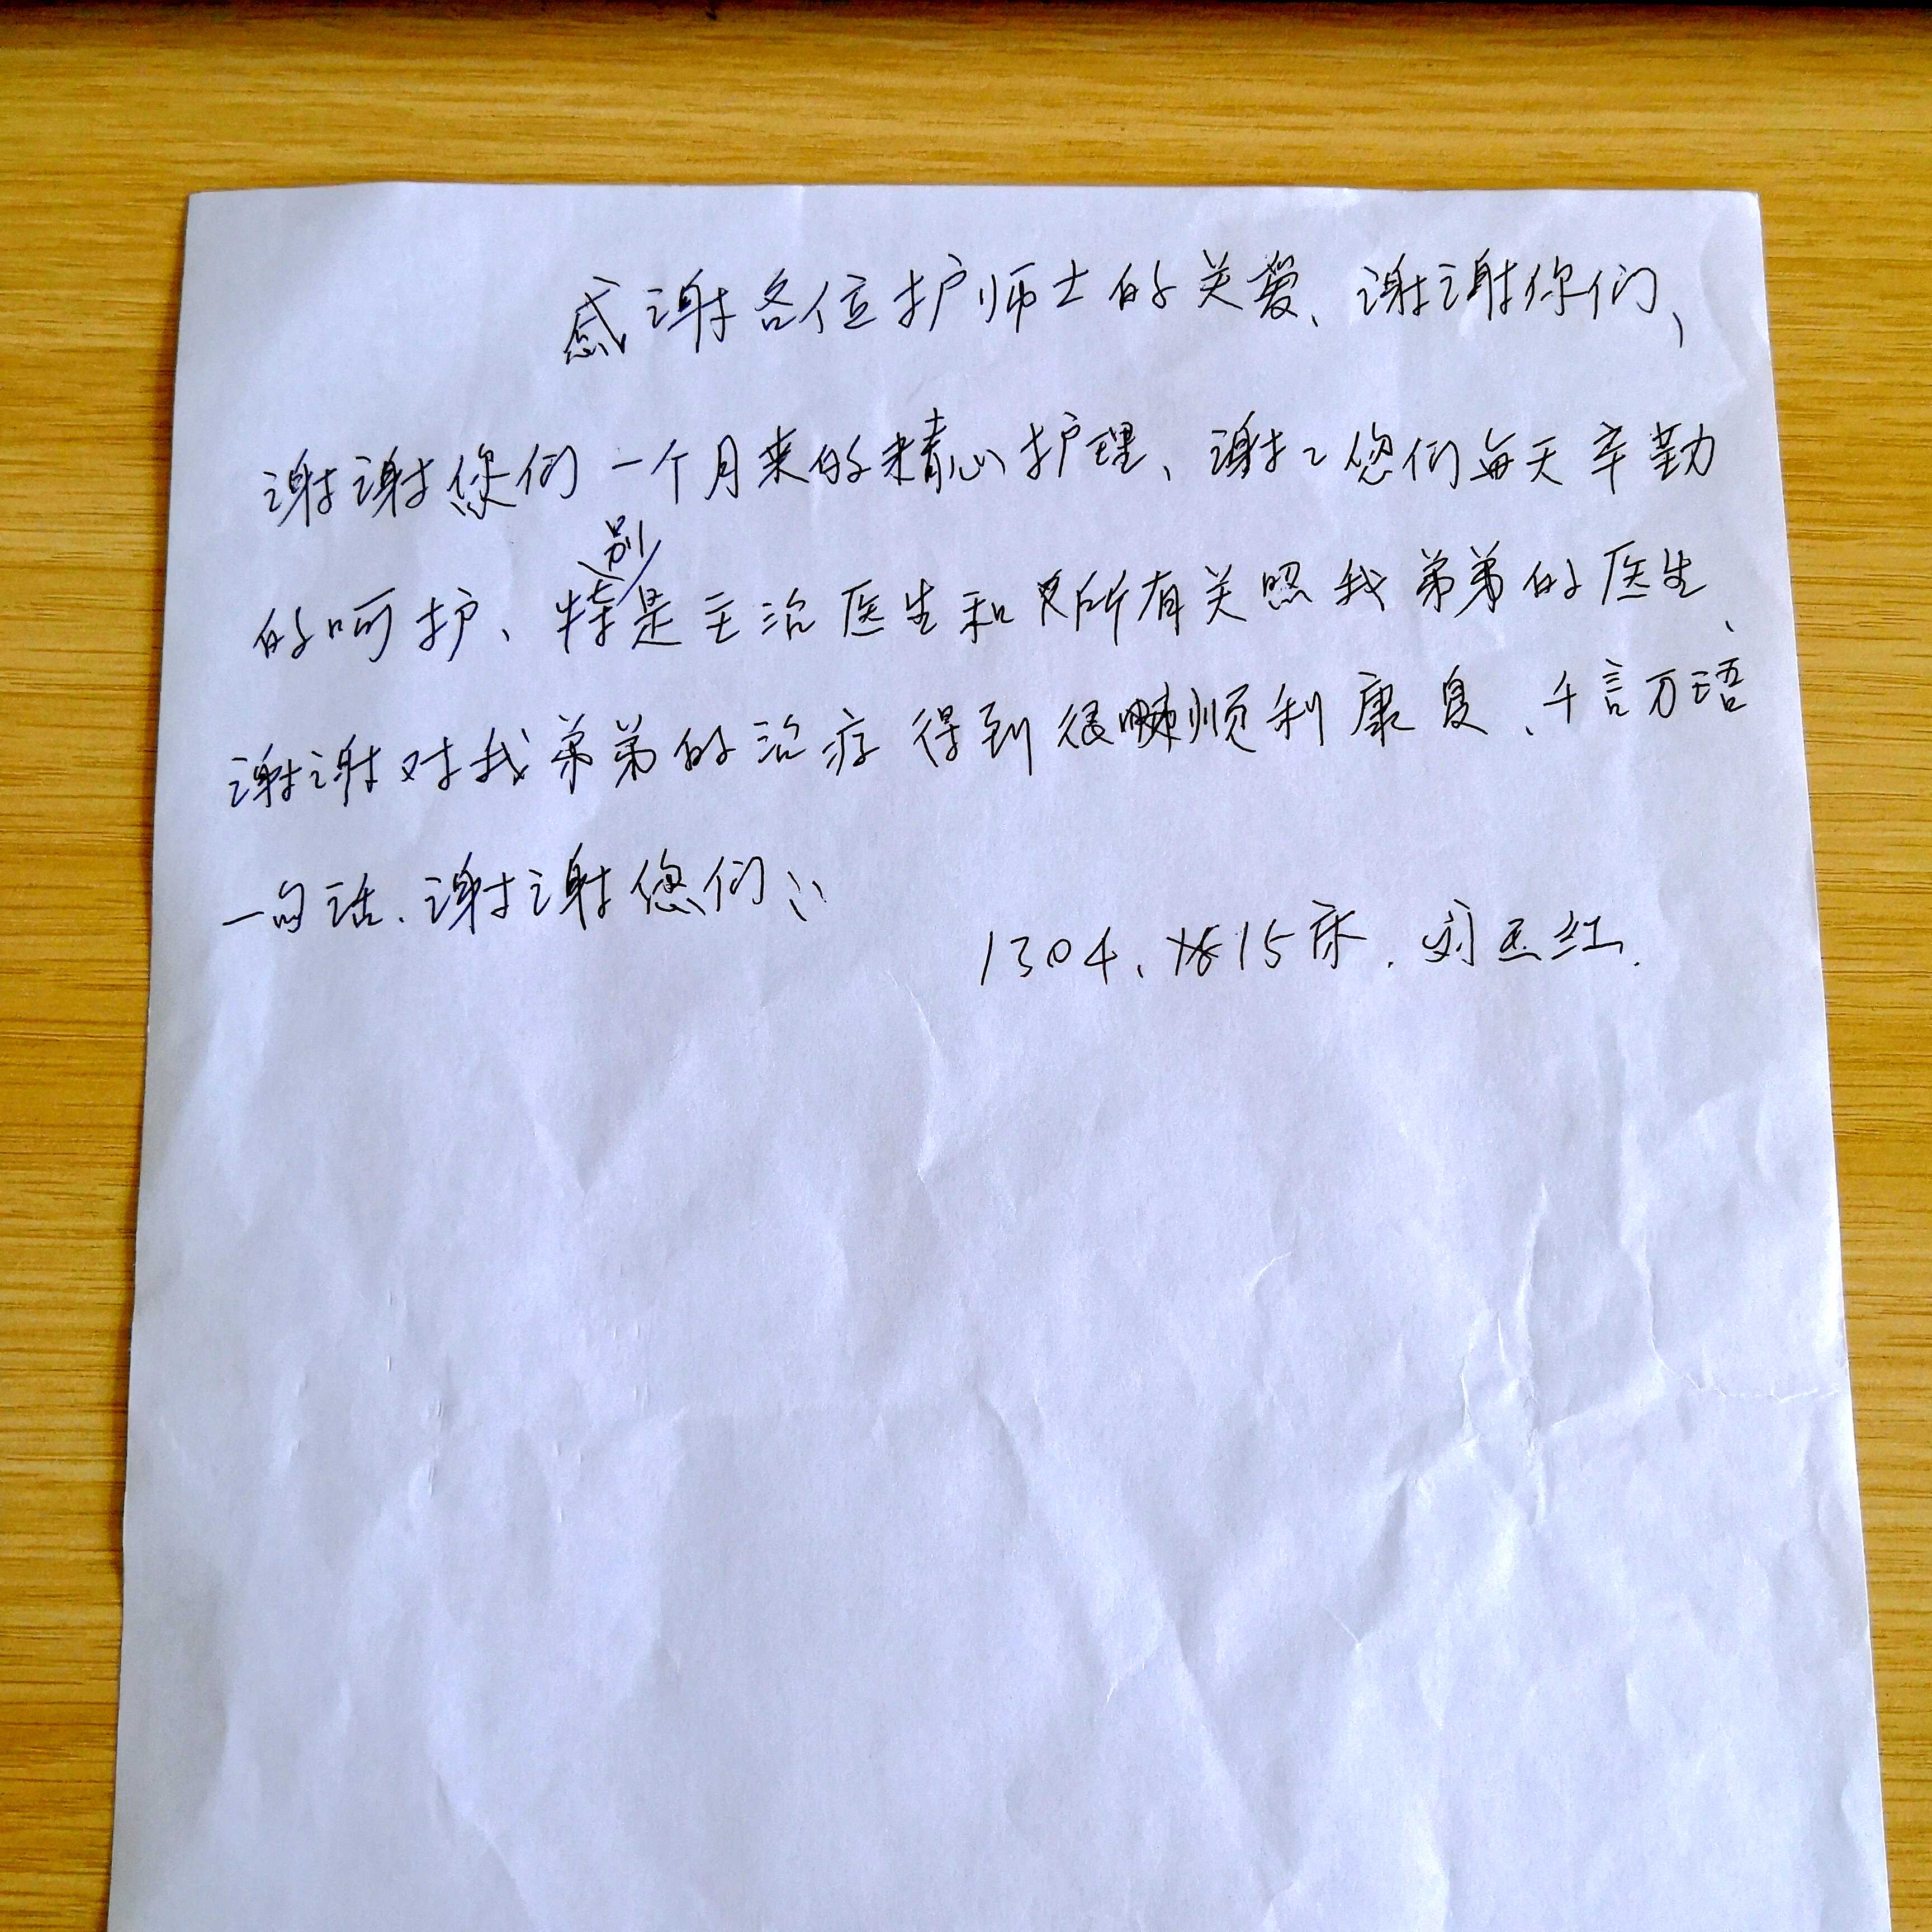 感谢各位护师士的关爱、谢谢你们、
谢谢您们一个月来的精心护理、谢谢您们每天辛勤
的呵护、特别是主治医生和所有关照我弟弟的医生、
谢谢对我弟弟的治疗得到很顺利康复、千言万语
一句话.谢谢您们
1304、15床.刘玉红.